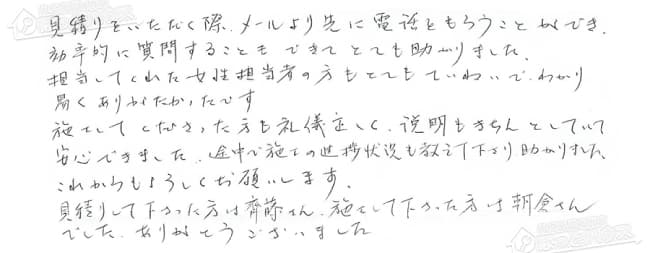 見積りをいただく際、メールより先に電話をもらうことができ、
効率的に質問することもできてとても助かりました。
担当してくれた女性担当者の方もとてもていねいで、わかり
易くありがたかったです
施工してくださった方も礼儀正しく、説明もきちんとしていて
安心できました。途中で施工の進捗状況も教えて下さり助かりました。
これからもよろしくお願いします。
見積りして下さった方は齊藤さん、施工して下さった方は朝倉さん
でした。ありがとうございました